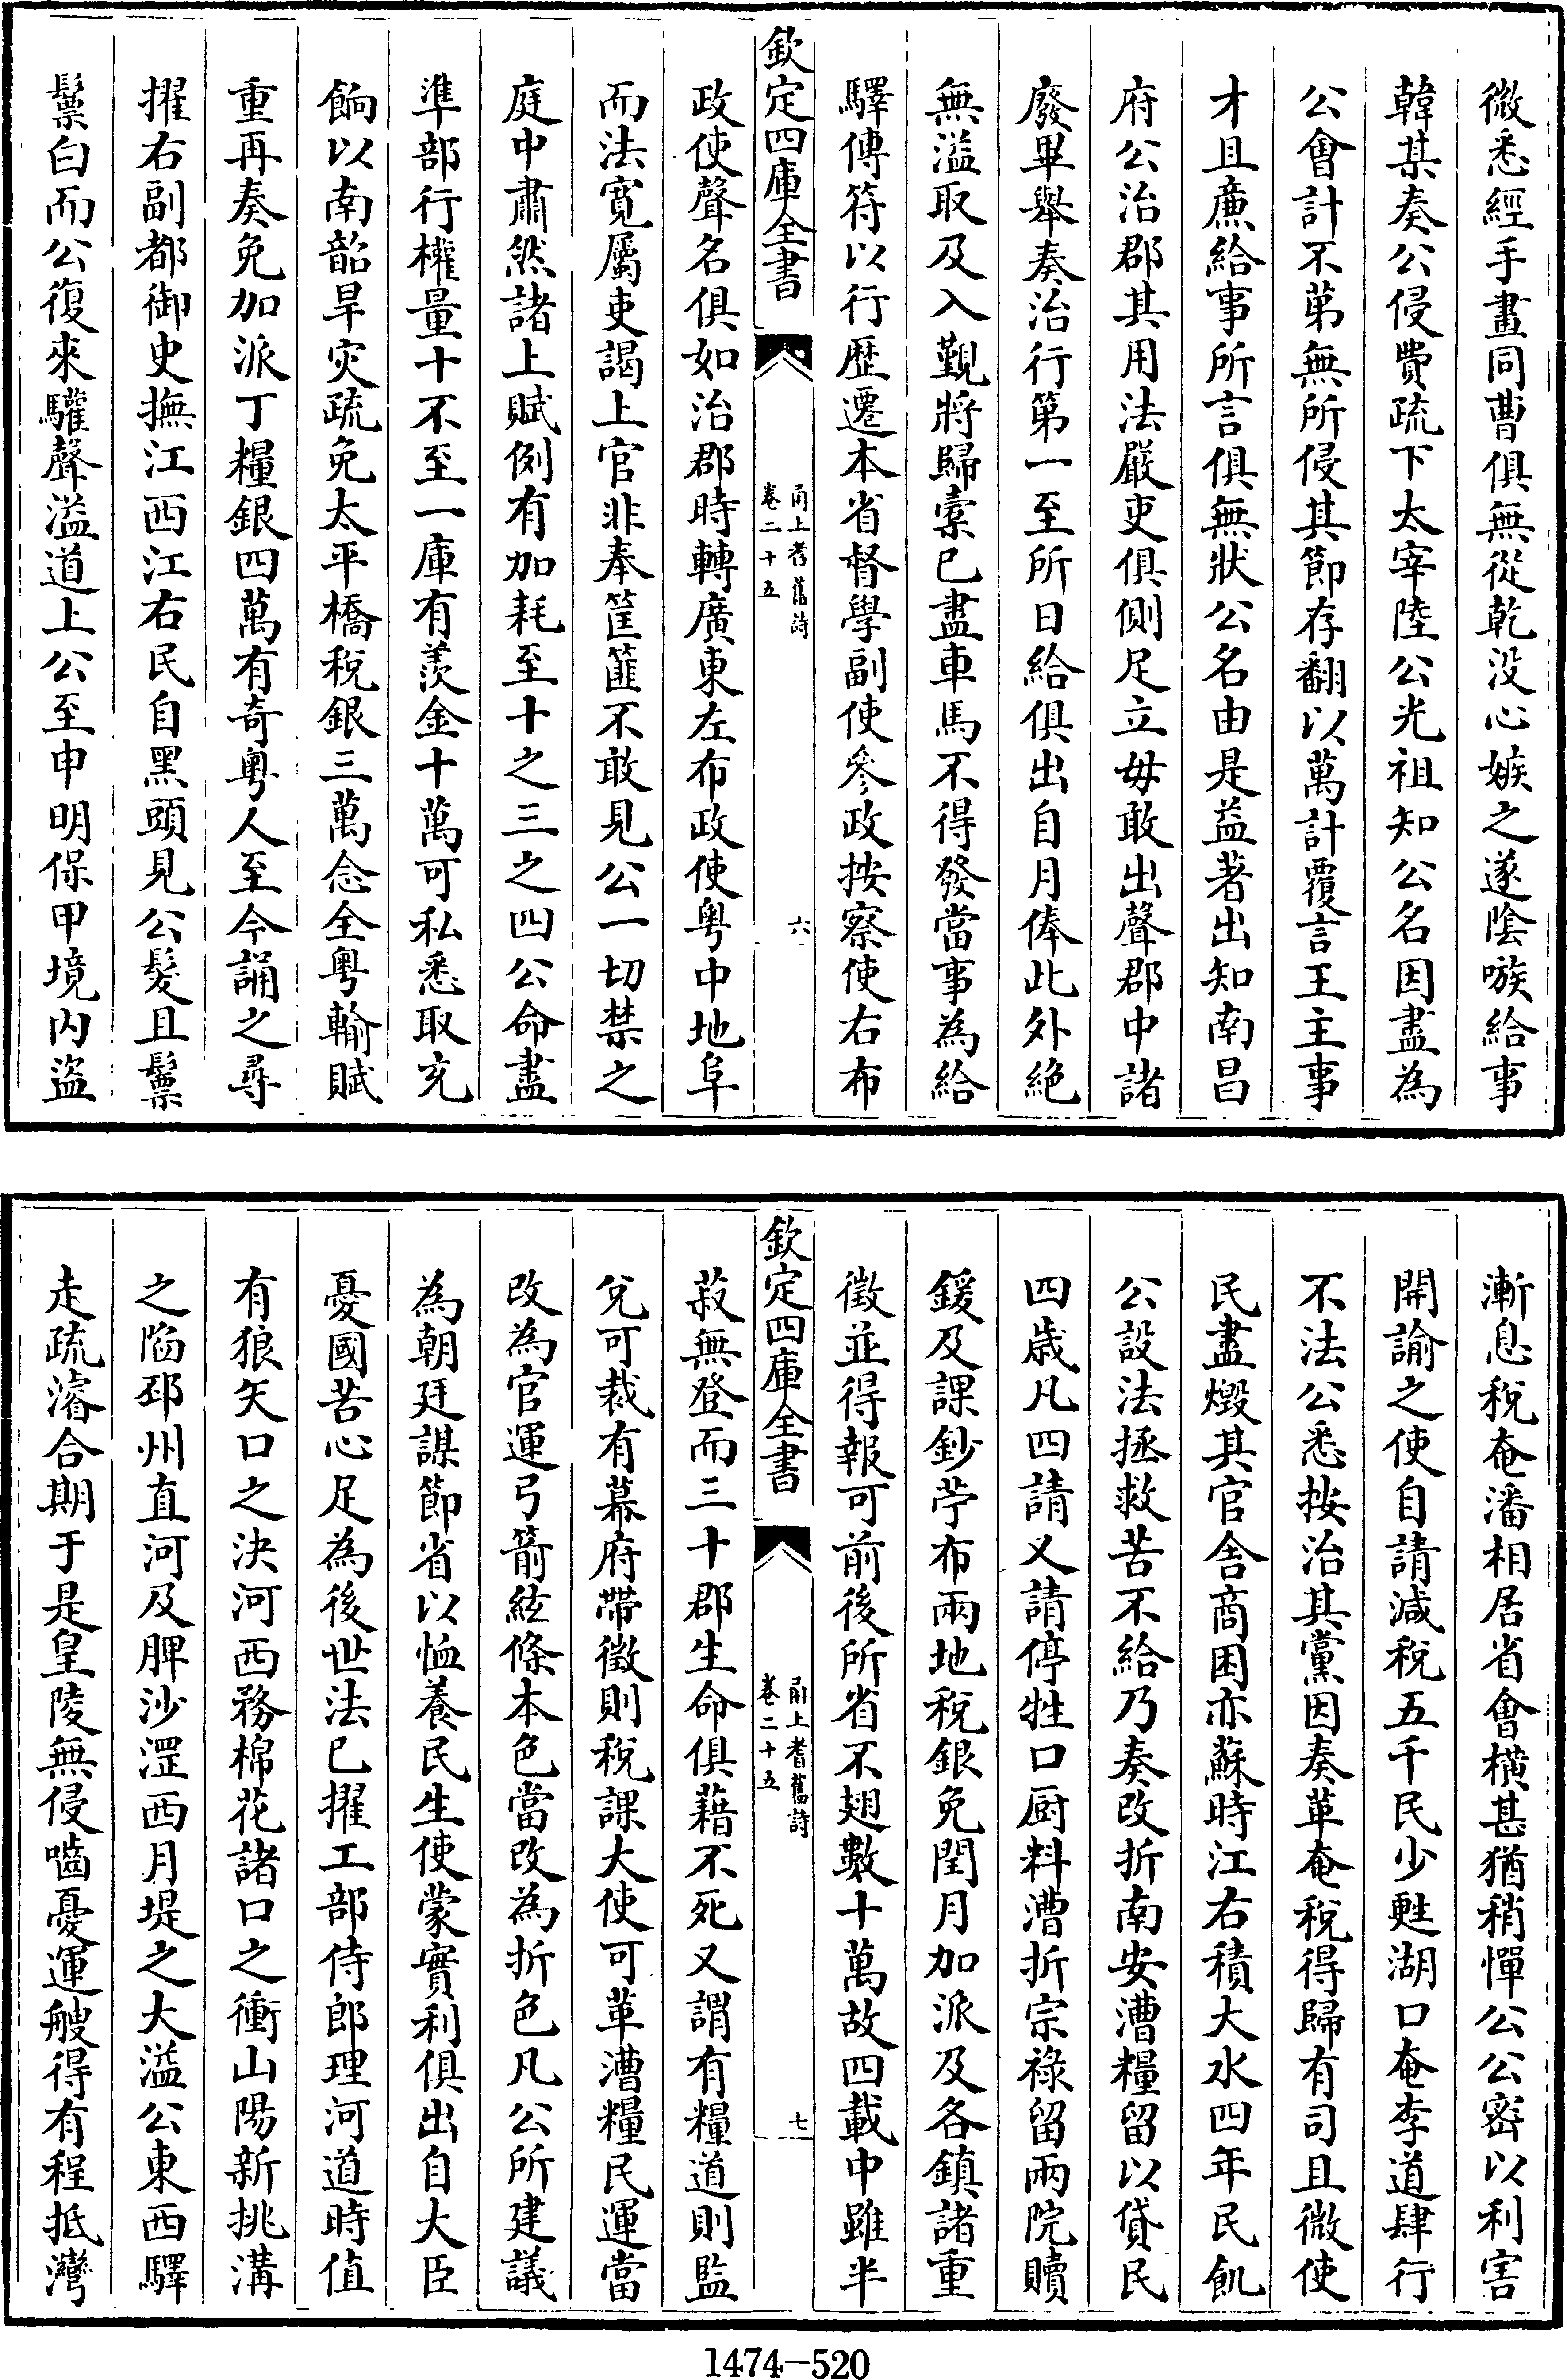 微悉經手畫同曹俱無從乾没心嫉之遂隂嗾給事
韓某奏公侵費疏下太宰陸公光祖知公名因盡為
公會計不第無所侵其節存翻以萬計覆言王主事
才且亷給事所言俱無狀公名由是益著出知南昌
府公治郡其用法嚴吏俱側足立毋敢出聲郡中諸
廢畢舉奏治行第一至所日給俱出自月俸此外絶
無溢取及入覲將歸橐已盡車馬不得發當事為給
驛傳符以行歴遷本省督學副使參政按察使右布
欽定四庫全書
甬上耆舊詩
卷二十五
六
政使聲名俱如治郡時轉廣東左布政使粤中地阜
而法寛屬吏謁上官非奉筐篚不敢見公一切禁之
庭中肅然諸上賦例有加耗至十之三之四公命盡
準部行權量十不至一庫有羨金十萬可私悉取充
餉以南韶旱灾疏免太平橋稅銀三萬念全粤輸賦
重再奏免加派丁糧銀四萬有奇粤人至今誦之尋
擢右副都御史撫江西江右民自黑頭見公髮且鬓
鬓白而公復來驩聲溢道上公至申明保甲境内盜
漸息稅奄潘相居省會橫甚猶稍憚公公密以利害
開諭之使自請減稅五千民少甦湖口奄李道肆行
不法公悉按治其黨因奏革奄稅得歸有司且微使
民盡燬其官舍商困亦蘇時江右積大水四年民飢
公設法拯救苦不給乃奏改折南安漕糧留以貸民
四歳凡四請又請停牲口厨料漕折宗祿留兩院贖
鍰及課鈔苧布兩地稅銀免閏月加派及各鎮諸重
徵並得報可前後所省不翅數十萬故四載中雖半
欽定四庫全書
甬上耆舊詩
卷二十五
七
菽無登而三十郡生命俱藉不死又謂有糧道則監
兌可裁有幕府帶徵則稅課大使可革漕糧民運當
改為官運弓箭絃條本色當改為折色凡公所建議
為朝廷謀節省以恤養民生使蒙實利俱出自大臣
憂國苦心足為後世法已擢工部侍郎理河道時值
有狼矢口之決河西務棉花諸口之衝山陽新挑溝
之陷邳州直河及脾沙涇西月堤之大溢公東西驛
走疏濬合期于是皇陵無侵嚙憂運艘得有程抵灣
1474-520